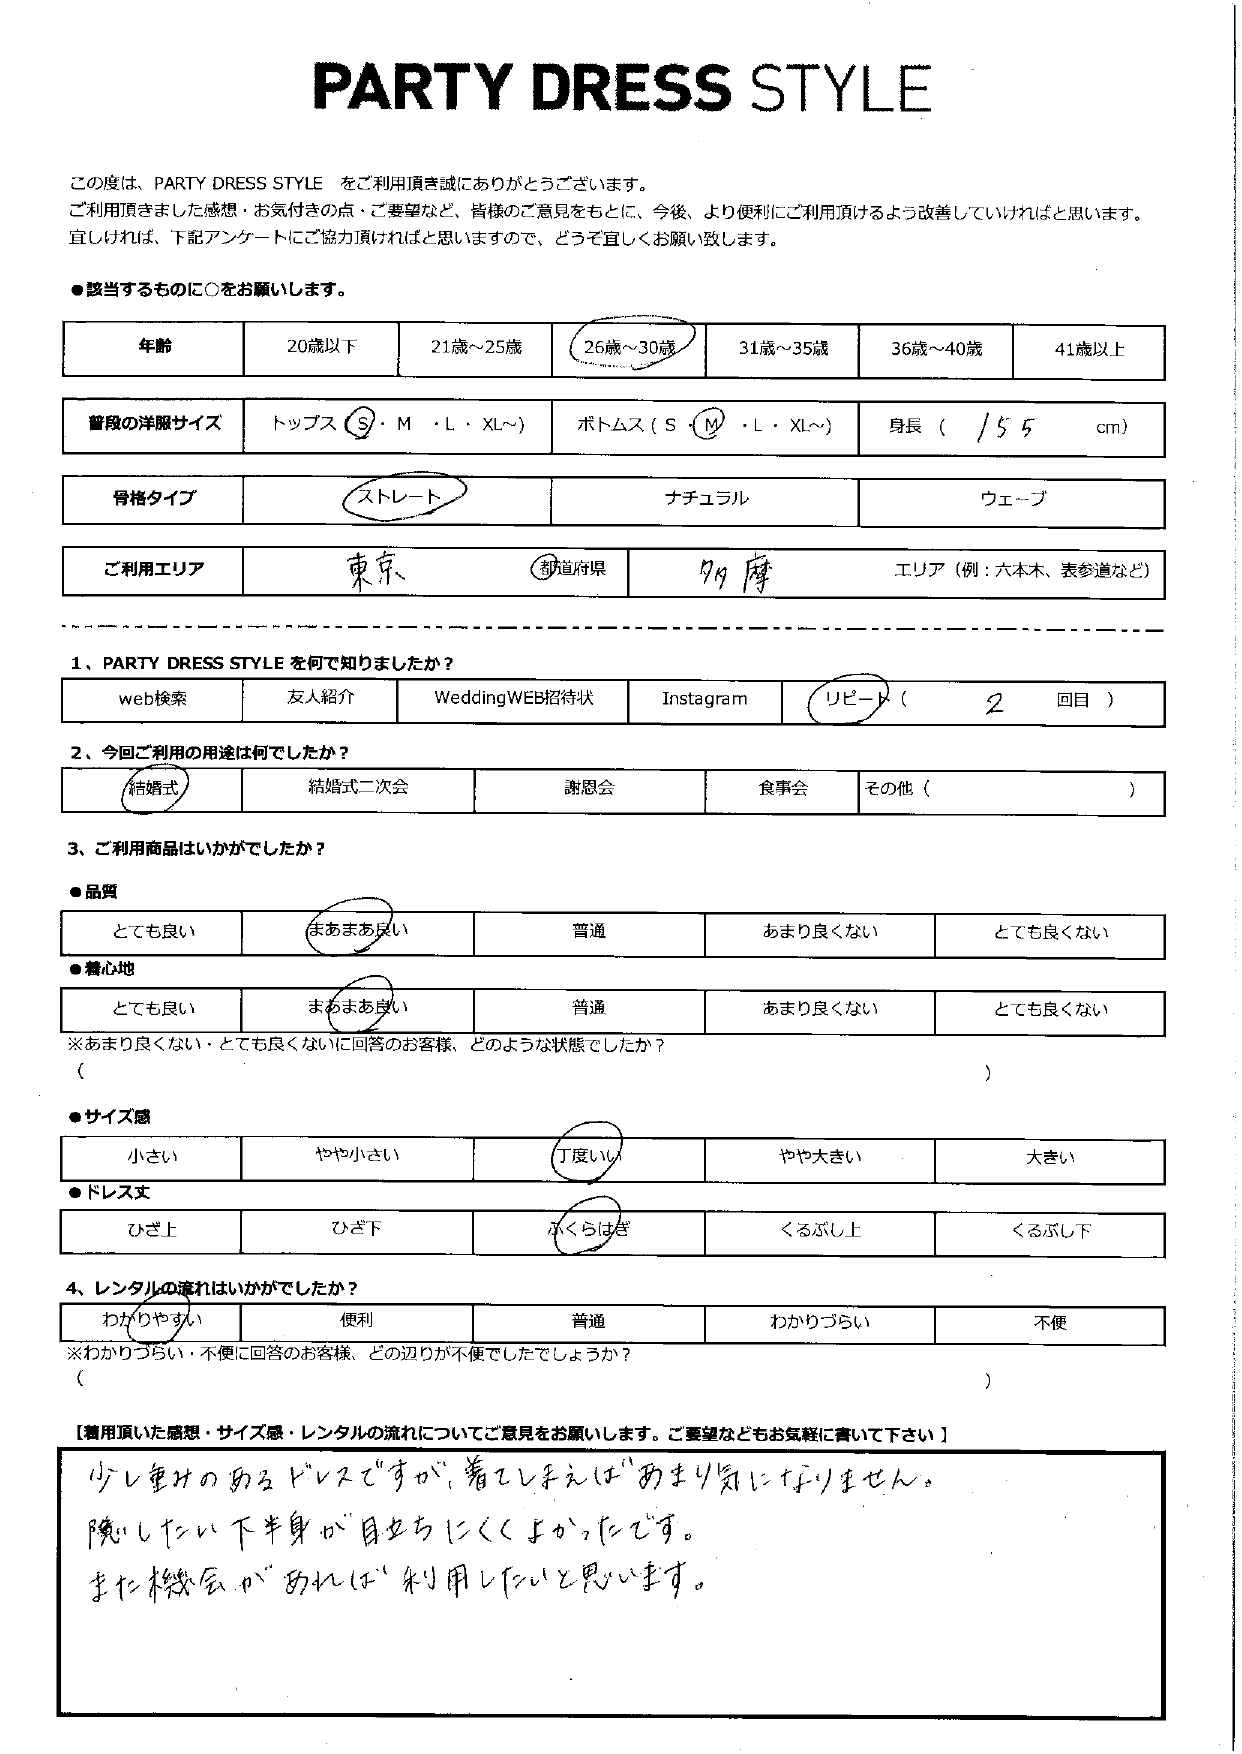 PARTY DRESS STYLE
この度は、PARTY DRESS STYLE をご利用頂き誠にありがとうございます。
ご利用頂きました感想・お気付きの点・ご要望など、皆様のご意見をもとに、今後、より便利にご利用頂けるよう改善していければと思います。
宜しければ、下記アンケートにご協力頂ければと思いますので、どうぞ宜しくお願い致します。
●該当するものに○をお願いします。
年齢 20歳以下 21歳～25歳 26歳～30歳 31歳～35歳 36歳～40歳 41歳以上
普段の洋服サイズ トップス ( S ・ M ・L ・ XL～) ボトムス ( S ・ M ・L ・ XL～) 身長 ( 155 cm)
骨格タイプ ストレート ナチュラル ウェーブ
ご利用エリア 東京 都道府県 多摩 エリア（例：六本木、表参道など）
1、PARTY DRESS STYLE を何で知りましたか？
web検索 友人紹介 WeddingWEB招待状 Instagram リピート ( 2 回目 )
2、今回ご利用の用途は何でしたか？
結婚式 結婚式二次会 謝恩会 食事会 その他 ( )
3、ご利用商品はいかがでしたか？
●品質
とても良い まあまあ良い 普通 あまり良くない とても良くない
●着心地
とても良い まあまあ良い 普通 あまり良くない とても良くない
※あまり良くない・とても良くないに回答のお客様、どのような状態でしたか？
( )
●サイズ感
小さい やや小さい 丁度いい やや大きい 大きい
●ドレス丈
ひざ上 ひざ下 ふくらはぎ くるぶし上 くるぶし下
4、レンタルの流れはいかがでしたか？
わかりやすい 便利 普通 わかりづらい 不便
※わかりづらい・不便に回答のお客様、どの辺りが不便でしたでしょうか？
( )
【着用頂いた感想・サイズ感・レンタルの流れについてご意見をお願いします。ご要望などもお気軽に書いて下さい】
少し重みのあるドレスですが、着てしまえばあまり気になりません。
隠したい下半身が目立ちにくくよかったです。
また機会があれば利用したいと思います。